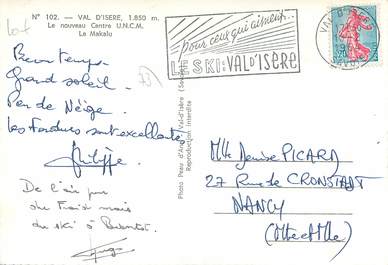 N° 102. - VAL D'ISERE, 1.850 m.
Le nouveau Centre U.N.C.M.
La Makalu
Beau temps
Grand soleil.
Peu de Neige.
Les Fondues sont excellentes
Philippe
De l'air pur
du Froid mais
du ski à Bientôt.
pour ceux qui aiment...
LE SKI: VAL D'ISÈRE
VAL D'ISERE
SAVOIE
Reproduction interdite
Mlle Denise PICARD
27 Rue de CRONSTADT
NANCY
(Mthe et Mlle)